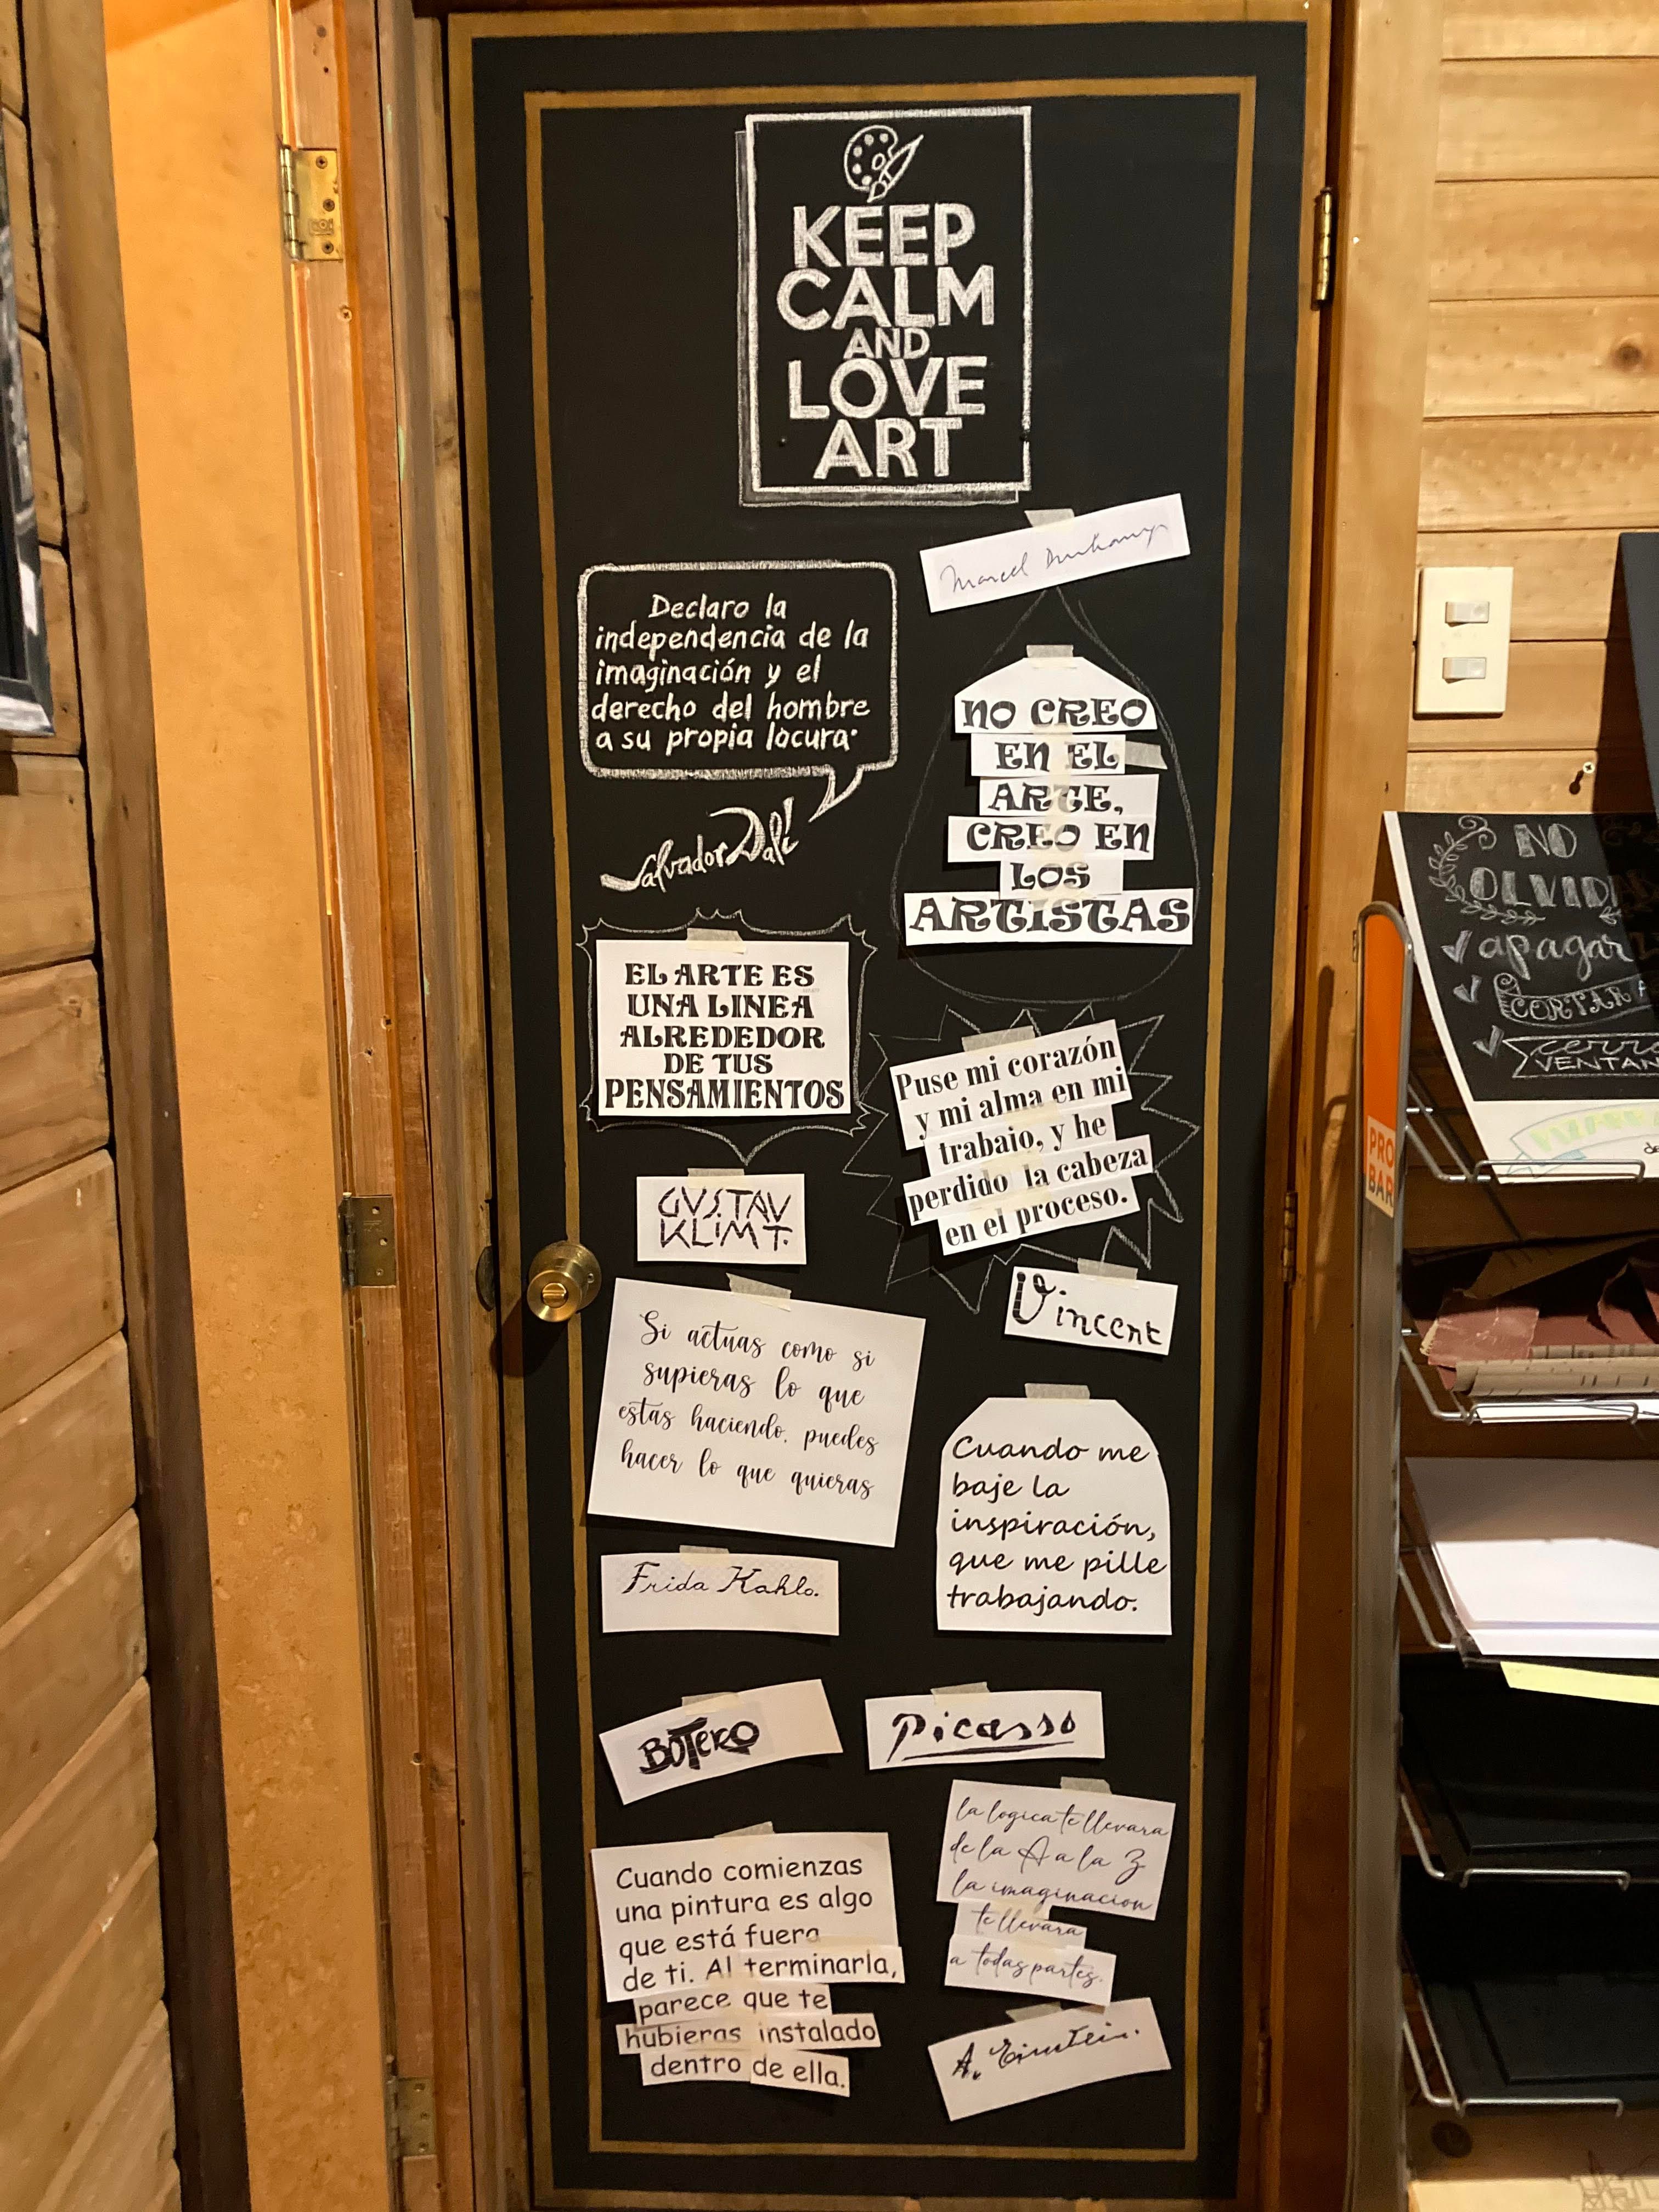 KEEP
CALM
AND
LOVE
ART
Marcel Duchamp
Declaro la
independencia de la
imaginación y el
derecho del hombre
a su propia locura.
Salvador Dalí
NO CREO
EN EL
ARTE,
CREO EN
LOS
ARTISTAS
EL ARTE ES
UNA LINEA
ALREDEDOR
DE TUS
PENSAMIENTOS
GUSTAV
KLIMT.
Puse mi corazón
y mi alma en mi
trabajo, y he
perdido la cabeza
en el proceso.
Vincent
Si actuas como si
supieras lo que
estas haciendo, puedes
hacer lo que quieras
Frida Kahlo.
Cuando me
baje la
inspiración,
que me pille
trabajando.
Picasso
BOTERO
Cuando comienzas
una pintura es algo
que está fuera
de ti. Al terminarla,
parece que te
hubieras instalado
dentro de ella.
la logica te llevara
de la A a la Z
la imaginacion
te llevara
a todas partes.
A. Einstein.
NO
OLVID
apagar
CORTAR
VENTAN
PRO
BAR